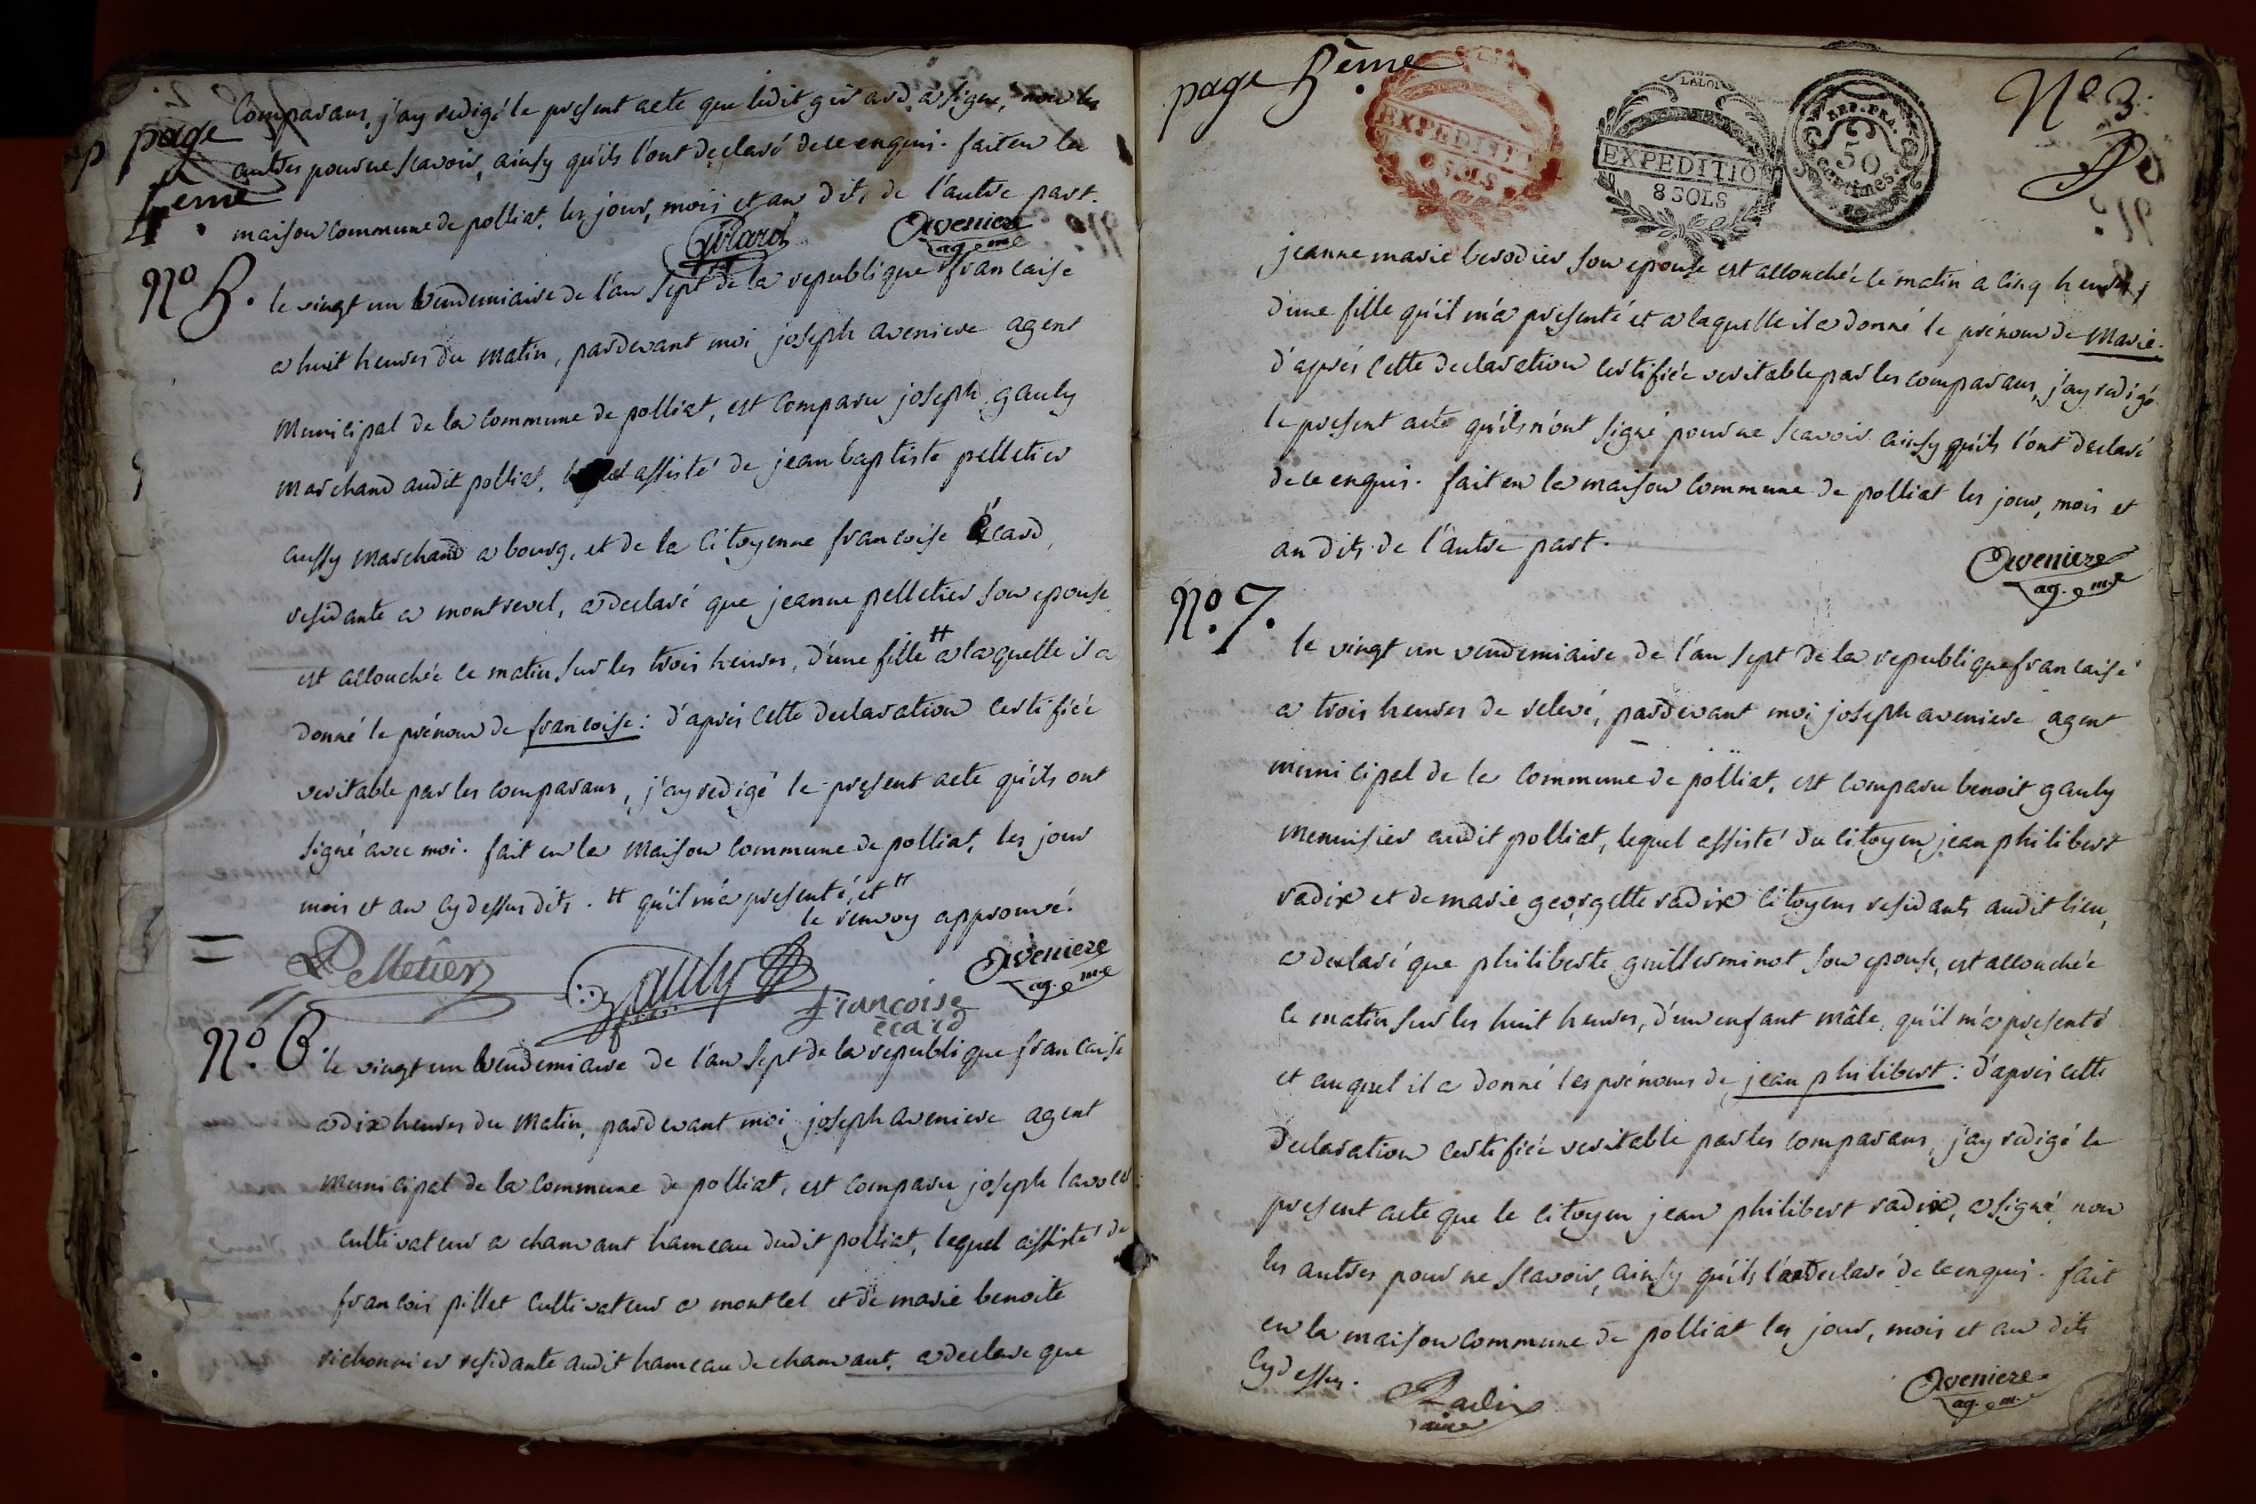 page
4ème.
Comparans, j'ay redigé le present acte que ledit girard a signé, non les
autres pour ne scavoir, ainsy qu'ils l'ont declaré de ce enquis. fait en la
maison commune de polliat, les jour, mois et an dits de l'autre part.
Girard
Aveniere
ag. m.e
No 5.
le vingt un vendemiaire de l'an sept de la republique francaise
a huit heures du matin, pardevant moi joseph aveniere agent
municipal de la commune de polliat, est comparu joseph gauly
marchand audit polliat, lequel assisté de jean baptiste pelletier
aussy marchand a bourg, et de la citoyenne francoise écard,
residante a montrevel, a declaré que jeanne pelletier son epouse
est accouchée ce matin sur les trois heures, d'une fille # a laquelle il a
donné le prénom de francoise: d'aprés cette declaration certifiée
veritable par les comparans, j'ay redigé le present acte qu'ils ont
signé avec moi. fait en la maison commune de polliat, les jour
mois et an cy dessus dits. # qu'il m'a presenté, et #
le renvoy approuvé.
Pelletier
Gauly
Aveniere
ag. m.e
françoise
écard
No. 6.
le vingt un vendemiaire de l'an sept de la republique francaise
a dix heures du matin, pardevant moi joseph aveniere agent
municipal de la commune de polliat, est comparu joseph
cultivateur a chanvant hameau dudit polliat, lequel assisté de
francois pillet cultivateur a montcel et de marie benoite
richonnier residante audit hameau de chanvant, a declare que
page 5ème.
EXPEDITION
8 SOLS
LA LOI
EXPEDITION
8 SOLS
REP. FRA.
50
centimes.
No 3.
jeanne marie berodier son epouse est accouchée ce matin a cinq heures,
d'une fille qu'il m'a presenté et a laquelle il a donné le prénom de Marie.
d'aprés cette declaration certifiée veritable par les comparans, j'ay redigé
le present acte qu'ils n'ont signé pour ne scavoir ainsy qu'ils l'ont declaré
de ce enquis. fait en la maison commune de polliat les jour, mois et
an dits de l'autre part.
Aveniere
ag. m.e
No. 7.
le vingt un vendemiaire de l'an sept de la republique francaise
a trois heures de relevé, pardevant moi joseph aveniere agent
municipal de la commune de polliat, est comparu benoit gauly
menuisier audit polliat, lequel assisté du citoyen jean philibert
radix et de marie georgette radix citoyens residants audit lieu,
a declaré que philiberte guillerminot son epouse, est accouchée
ce matin sur les huit heures, d'un enfant mâle, qu'il m'a presenté
et auquel il a donné les prénoms de jean philibert: d'aprés cette
declaration certifiée veritable par les comparans, j'ay redigé le
present acte que le citoyen jean philibert radix, a signé, non
les autres pour ne scavoir, ainsy qu'ils l'ont declaré de ce enquis. fait
en la maison commune de polliat les jour, mois et an dits
cy dessus.
Radix
Aveniere
ag. m.e